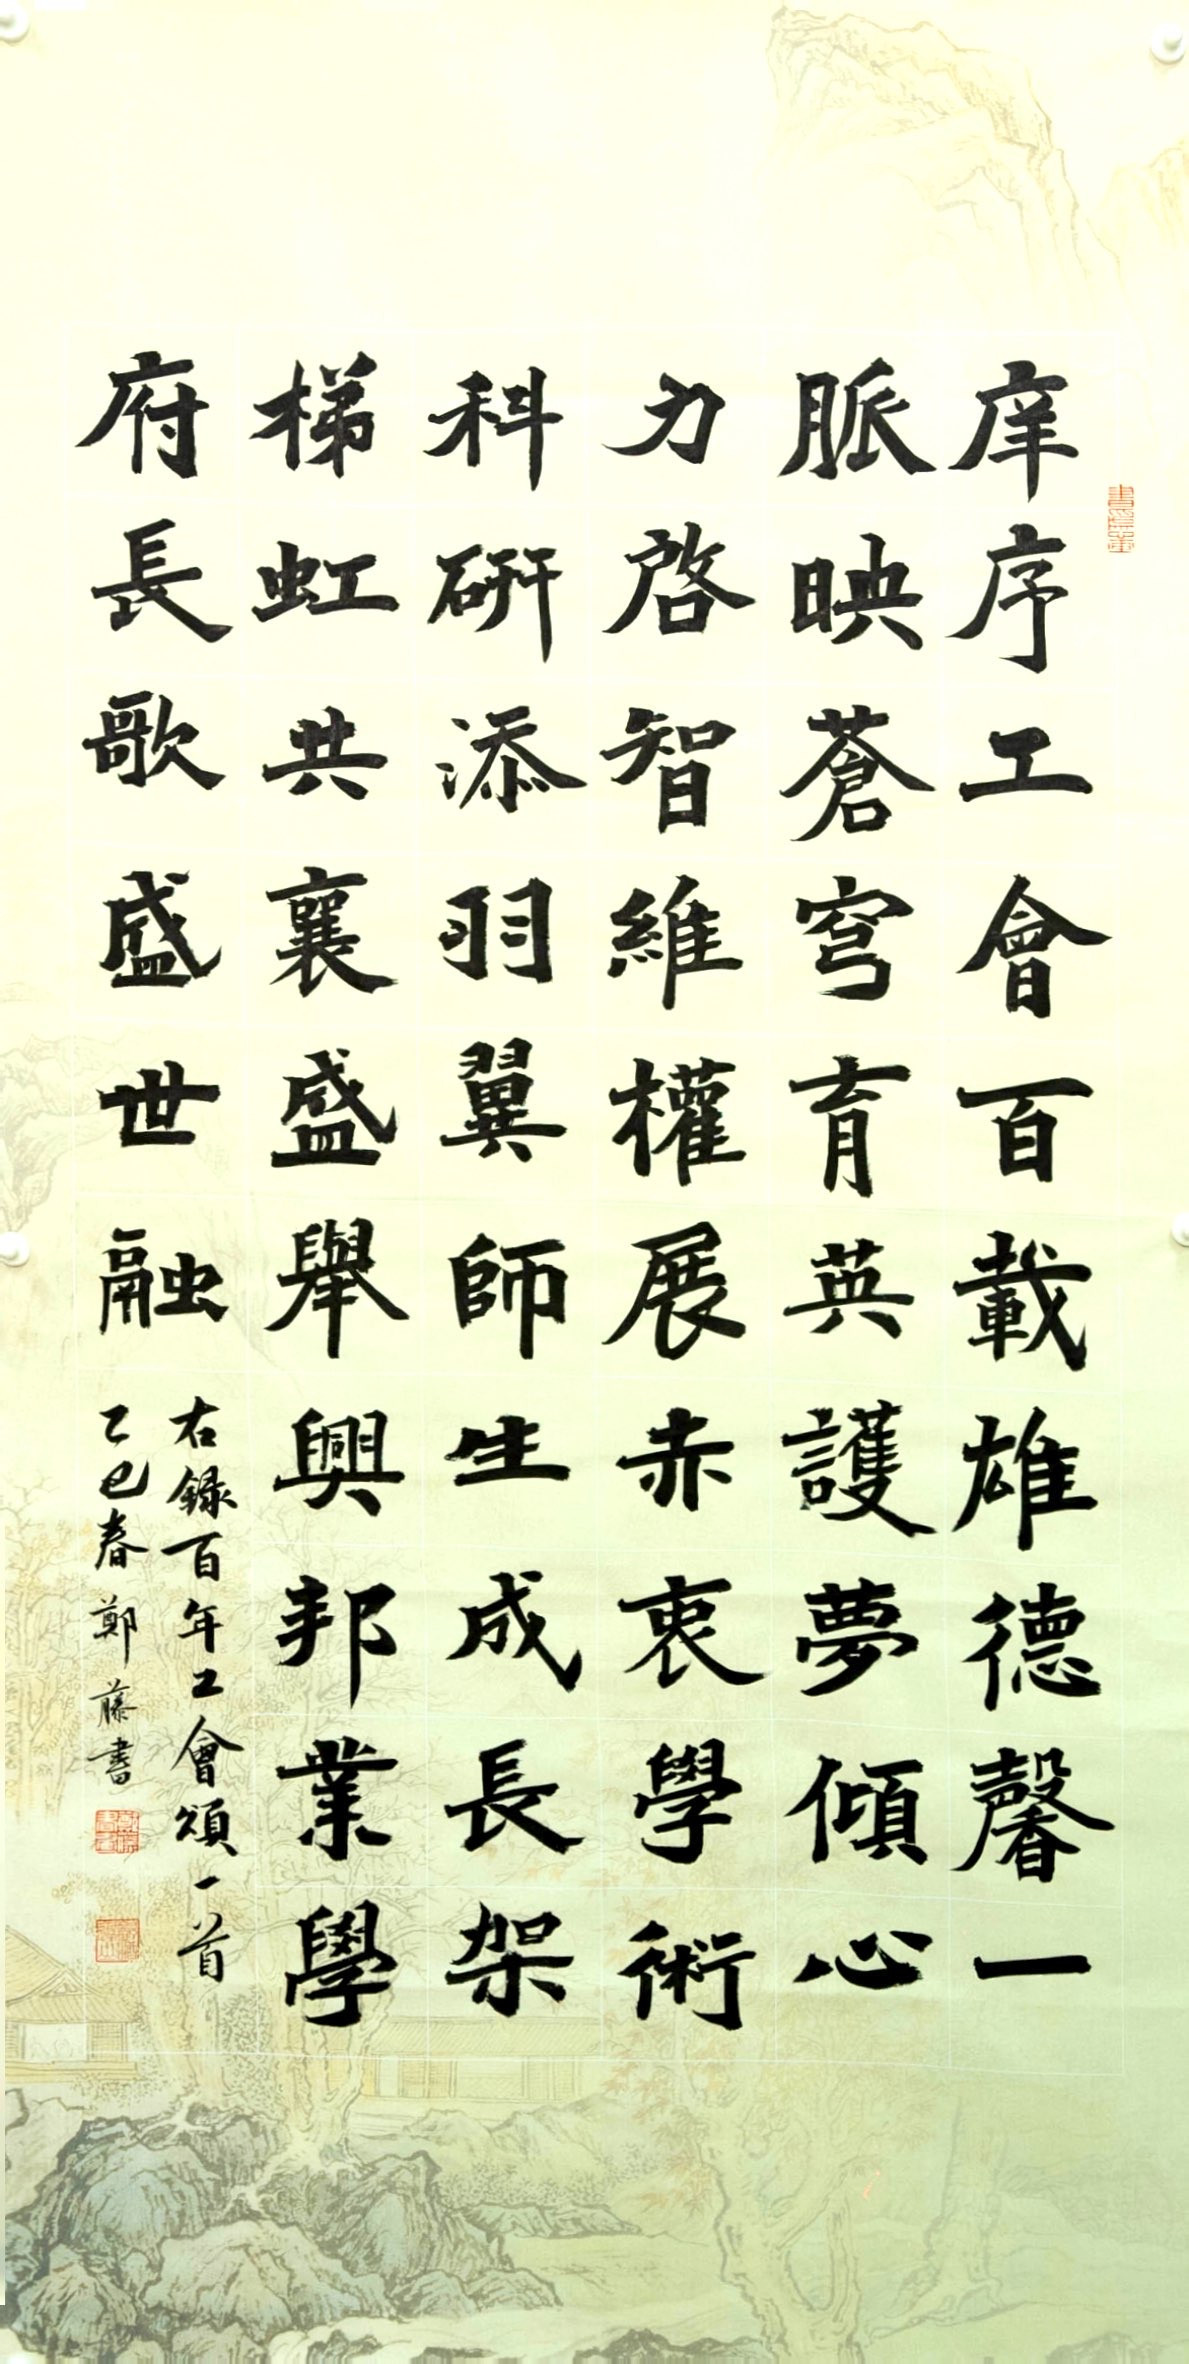 庠序工會百載雄德馨一
脈映蒼穹育英護夢傾心
力啓智維權展赤衷學術
科研添羽翼師生成長架
梯虹共襄盛舉興邦業學
府長歌盛世融
右録百年工會頌一首
乙巳春鄭藤書